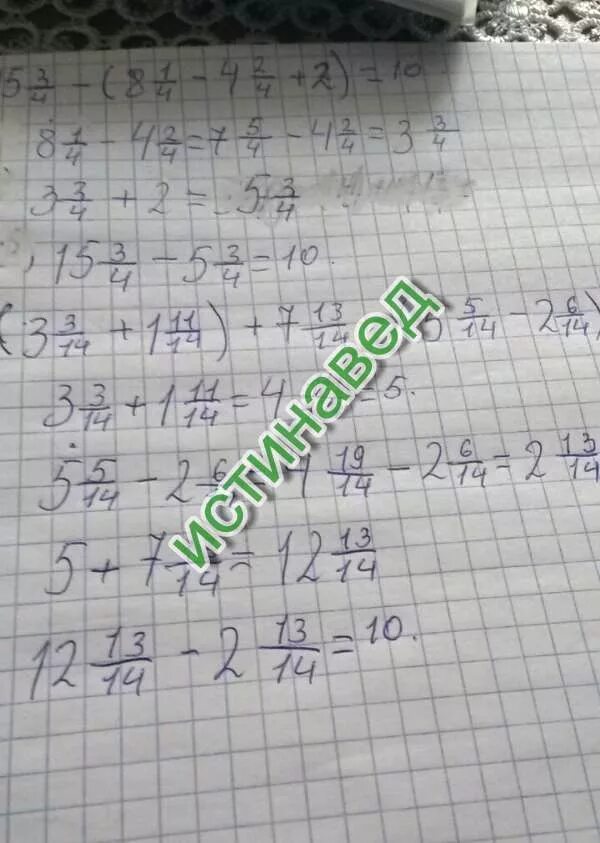 5 3/4 - (8 1/4 - 4 2/4 + 2) = 10
8 1/4 - 4 2/4 = 7 5/4 - 4 2/4 = 3 3/4
3 3/4 + 2 = 5 3/4
15 3/4 - 5 3/4 = 10.
(3 3/14 + 1 11/14) + 7 13/14 5 5/14 - 2 6/14)
3 3/14 + 1 11/14 = 4 = 5.
5 5/14 - 2 6 19/14 - 2 6/14 = 2 13/14
5 + 7 /14 = 12 13/14
12 13/14 - 2 13/14 = 10.
истинавед